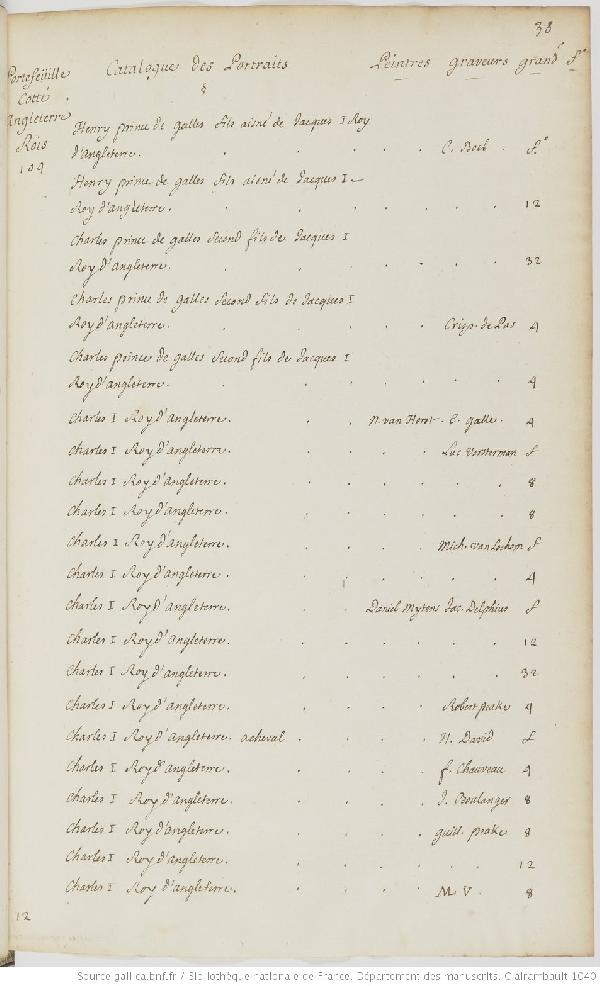 38
Portefeüille
Cotté
Angleterre
Rois
109
Catalogue des Portraits Peintres graveurs grand^r f^o
Henry prince de galles fils aisné de Jacques I Roy
d'Angleterre. C. Boel f^o
Henry prince de galles fils aisné de Jacques I
Roy d'angleterre. 12
Charles prince de galles Second fils de Jacques I
Roy d'angleterre. 32
Charles prince de galles Second fils de Jacques I
Roy d'angleterre. Crisp. de Pas 4
Charles prince de galles Second fils de Jacques I
Roy d'angleterre. 4
Charles I Roy d'angleterre. N. van Horst. C. galle. 4
Charles I Roy d'angleterre. Luc Vorsterman f
Charles I Roy d'angleterre. 8
Charles I Roy d'angleterre. 8
Charles I Roy d'angleterre. Mich. van Lochom f
Charles I Roy d'angleterre. 4
Charles I Roy d'angleterre. Daniel Mytens Jac. Delphius f
Charles I Roy d'angleterre. 12
Charles I Roy d'angleterre. 32
Charles I Roy d'angleterre. Robert peake 4
Charles I Roy d'angleterre. acheval H. David f
Charles I Roy d'angleterre. f. Chauveau 4
Charles I Roy d'angleterre. J. Boulanger 8
Charles I Roy d'angleterre. guill. peake 8
Charles I Roy d'angleterre. 12
Charles I Roy d'angleterre. M. V. 8
12
Source gallica.bnf.fr / Bibliothèque nationale de France. Département des manuscrits. Clairambault 1040